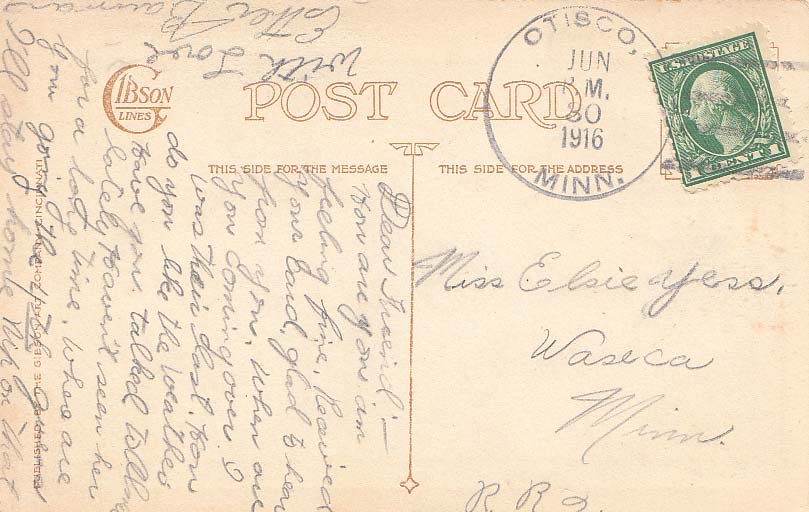 GIBSON
LINES
POST CARD
THIS SIDE FOR THE MESSAGE
THIS SIDE FOR THE ADDRESS
OTISCO,
JUN
P.M.
30
1916
MINN.
U.S. POSTAGE
1 CENT 1
Miss Elsie Yess,
Waseca
Minn.
R.R.
Dear Freind:—
How are you, am
feeling fine, Received
your Card, glad to hear
from you, When are
you coming over? I
was their last. How
do you like the weather
Have you talked to
lately Haven't seen her
for a long time. Where are
you going the 4th, I guess
I'll stay home.
With Love
Esther Bauman
PUBLISHED BY THE GIBSON ART COMPANY, CINCINNATI